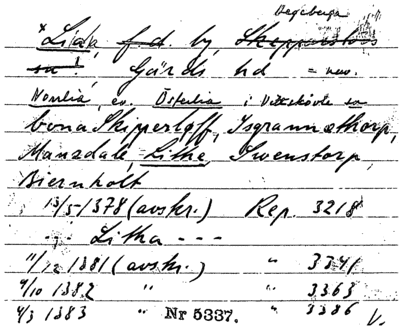 Degeberga
*Lia(a, f.d. by, Skepparslövs
sn! Gärds hd = nuv.
Norrlia, ev. Österlia i Vittskövle sn
bona Skiperløff, Isgrannathorp,
Manzdale, Lithe, Swenstorp,
Biernholt
13/5 1378 (avskr.) Rep. 3218
.. Litha ---
11/12 1381 (avskr.) " 3341
4/10 1382 " " 3363
4/3 1383 " Nr 5337. " 3386 V.